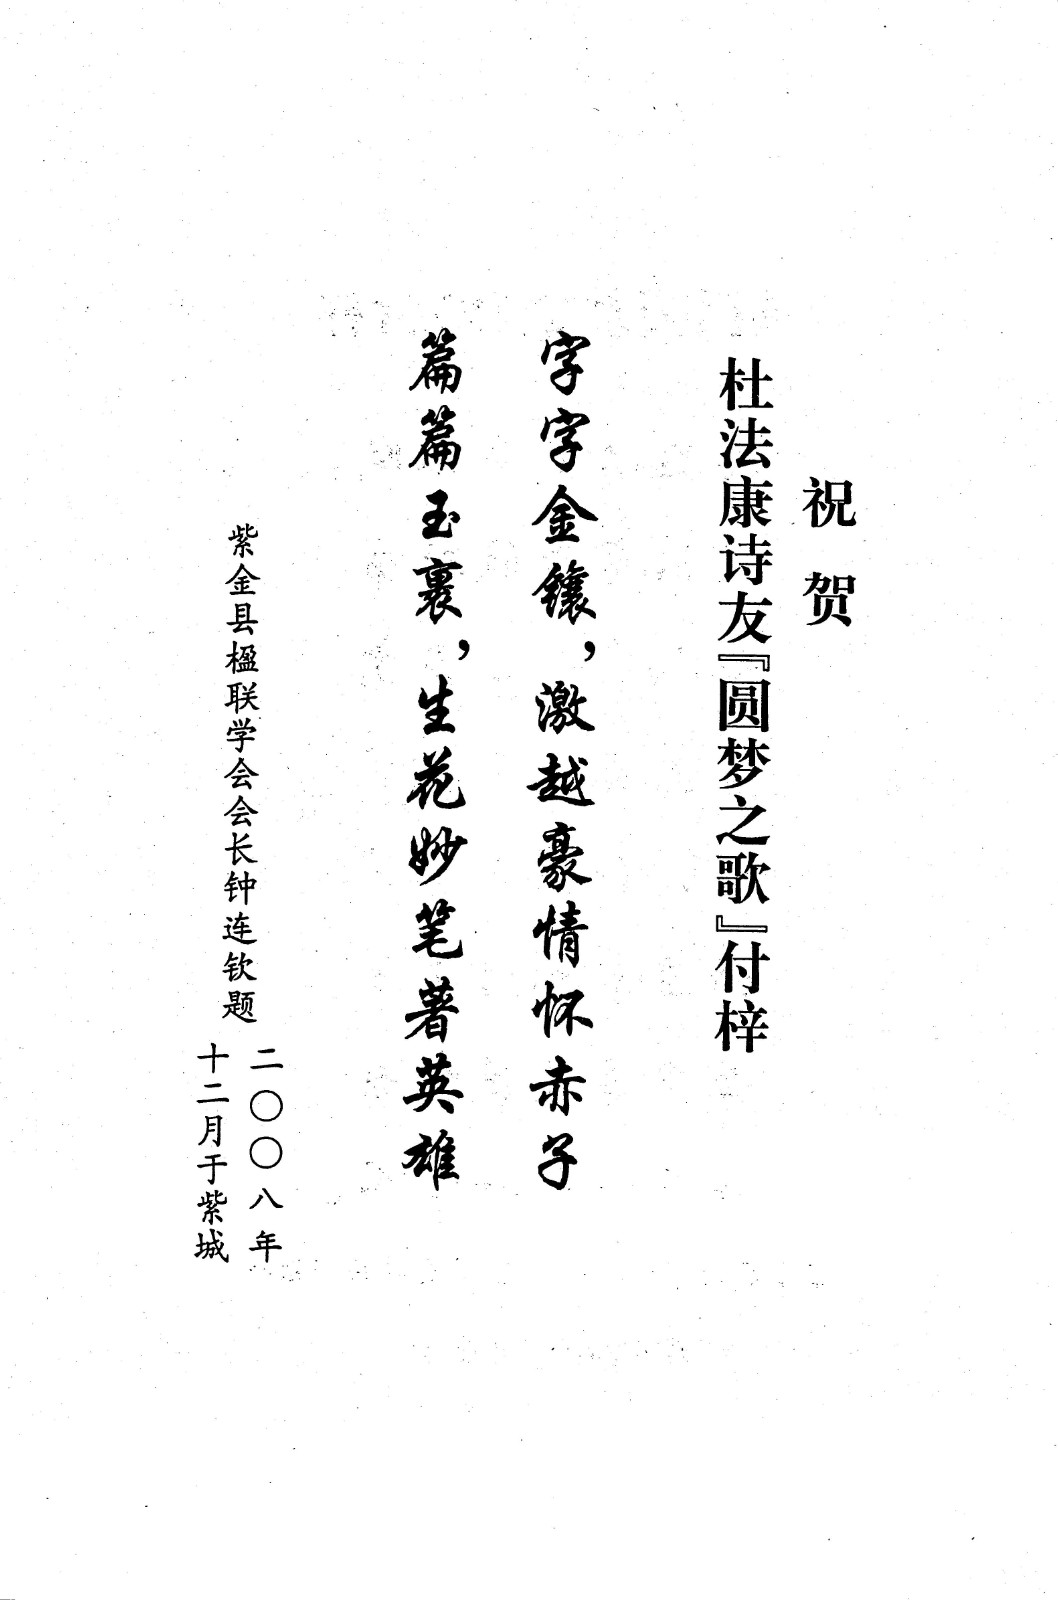 祝贺
杜法康诗友『圆梦之歌』付梓
字字金镶，激越豪情怀赤子
篇篇玉裹，生花妙笔著英雄
紫金县楹联学会会长钟连钦题
二〇〇八年
十二月于紫城